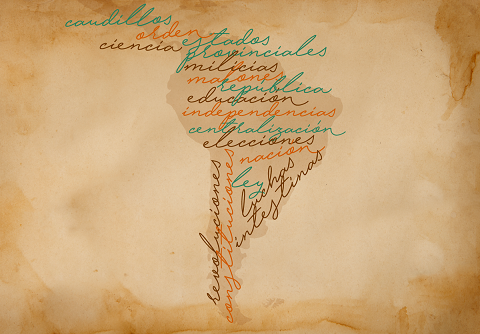 caudillos
orden
ciencia
estados
provinciales
milicias
malones
república
educación
independencias
centralización
elecciones
nación
ley
luchas
intestinas
revoluciones
constituciones